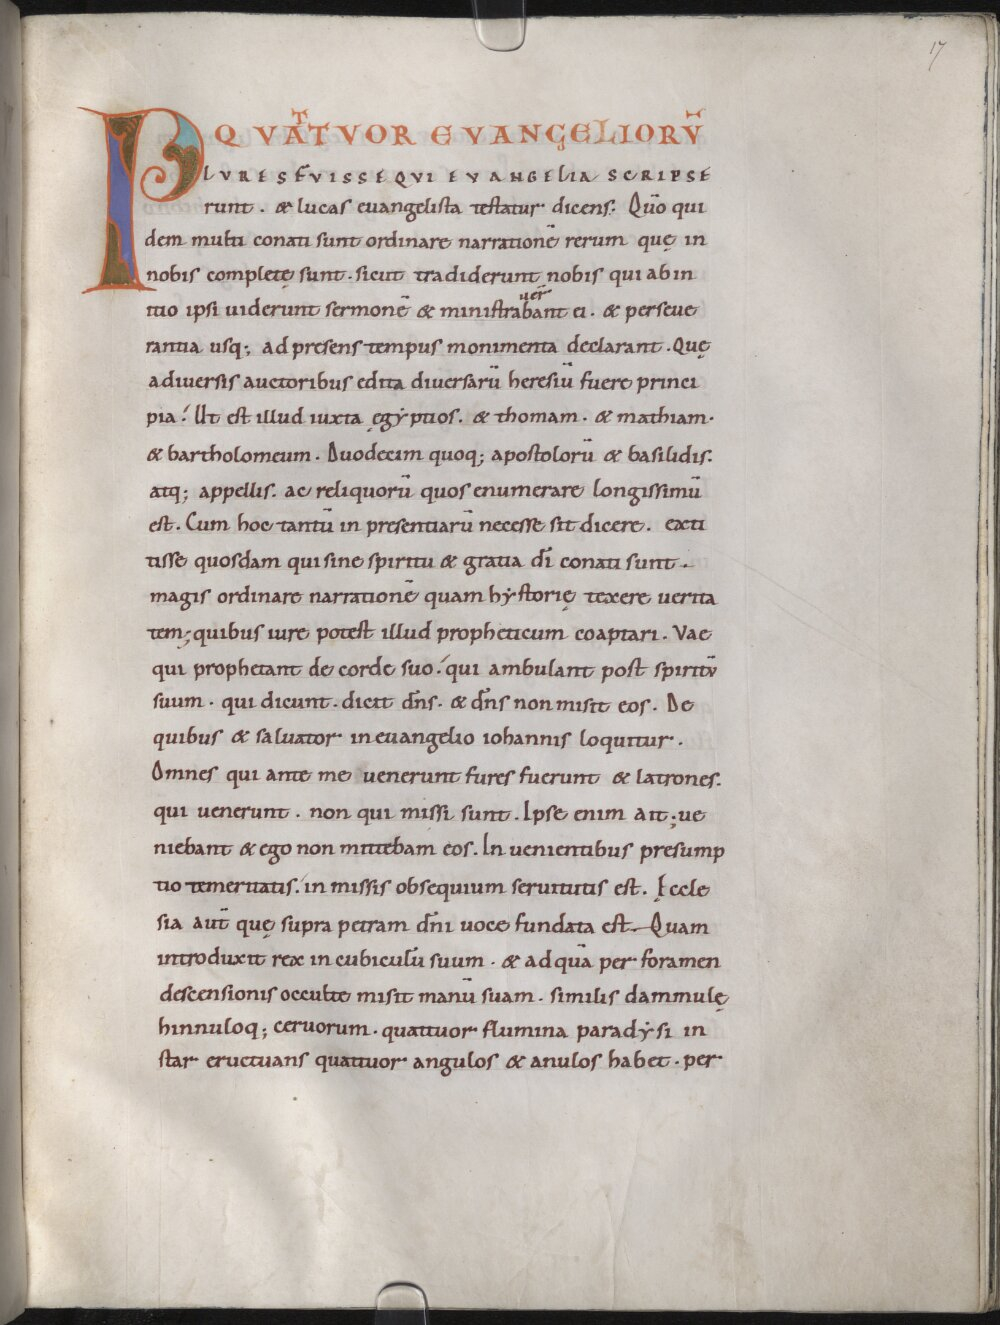 17
QVATTVOR EVANGELIORŪ
PLVRES FVISSE QVI EVANGELIA SCRIPSE
runt . & lucas euangelista testatur dicens: Qūo qui
dem multi conati sunt ordinare narrationē rerum quę in
nobis completę sunt . sicut tradiderunt nobis qui ab in
itio ipsi uiderunt sermonē & ministrabant ei . & perseue
uer
rantia usq; ad presens tempus monimenta declarant . Quę
a diuersis auctoribus edita diuersarū heresiū fuere princi
pia: Ut est illud iuxta ęgẏptios . & thomam . & mathiam .
& bartholomeum . Duodecim quoq; apostolorū & basilidis .
atq; appellis . ac reliquorū quos enumerare longissimū
est . Cum hoc tantū in presentiarū necesse sit dicere . exti
tisse quosdam qui sine spiritu & gratia dī conati sunt .
magis ordinare narrationē quam hẏstorię texere uerita
tem; quibus iure potest illud propheticum coaptari . Vae
qui prophetant de corde suo: qui ambulant post spiritū
suum . qui dicunt . dicit dn̄s . & dn̄s non misit eos . De
quibus & saluator in euangelio iohannis loquitur .
Omnes qui ante me uenerunt fures fuerunt & latrones .
qui uenerunt . non qui missi sunt . Ipse enim ait; ue
niebant & ego non mittebam eos . In uenientibus presump
tio temeritatis: in missis obsequium seruitutis est . Ęccle
sia aut̄ quę supra petram dn̄i uoce fundata est . Quam
introduxit rex in cubiculū suum . & ad quā per foramen
descensionis occultę misit manū suam . similis dammulę
hinnuloq; ceruorum . quattuor flumina paradẏsi in
star eructuans quattuor angulos & anulos habet . per